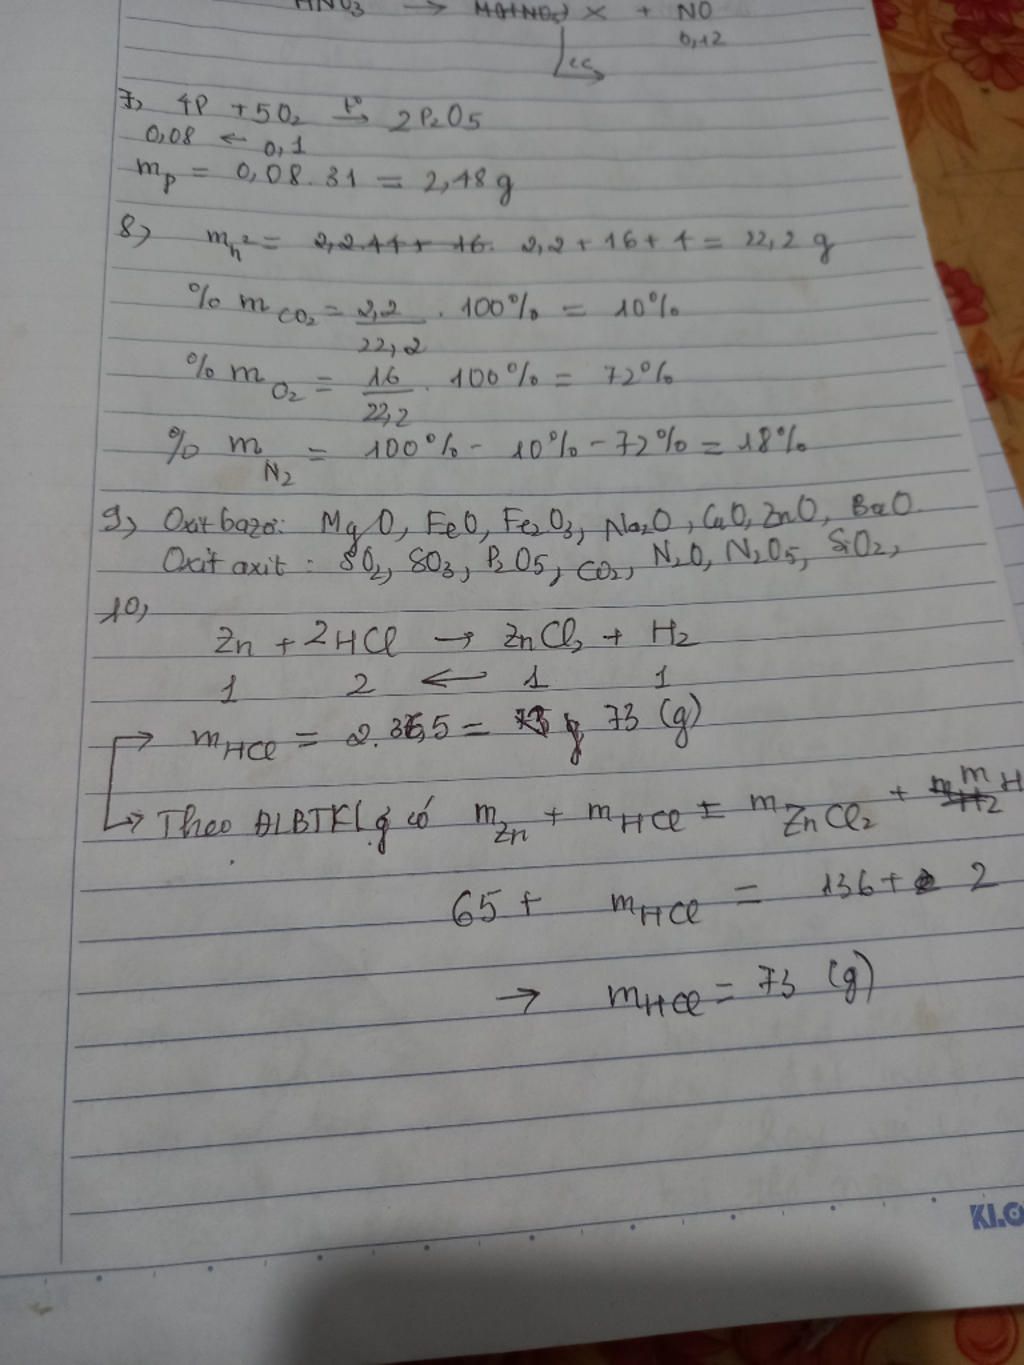 HNO3 → X + NO
0,12
7, 4P + 5O2 t°→ 2P2O5
0,08 ← 0,1
mP = 0,08.31 = 2,48g
8, mh² = 2,2.44 + 16. 2,2 + 16 + 4 = 22,2 g
% mCO2 = 2,2/22,2 . 100% = 10%
% mO2 = 16/22,2 . 100% = 72%
% mN2 = 100% - 10% - 72% = 18%
9, Oxit bazơ: MgO, FeO, Fe2O3, Na2O, CaO, ZnO, BaO.
Oxit axit: SO2, SO3, P2O5, CO2, N2O, N2O5, SiO2,
10,
Zn + 2HCl → ZnCl2 + H2
1 2 ← 1 1
→ mHCl = 2.36,5 = 73 (g)
→ Theo ĐLBTKL có mZn + mHCl = mZnCl2 + mH
65 + mHCl = 136 + 2
→ mHCl = 73 (g)